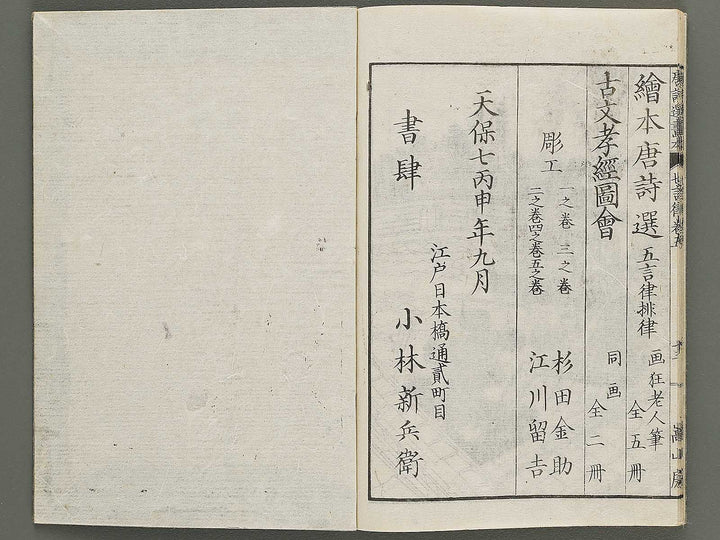 唐詩選画本 七言律 巻五 嵩山房
繪本唐詩選 五言律排律 画狂老人筆 全五冊
古文孝經圖會 同画 全二冊
彫工 一之巻 三之巻 杉田金助
二之巻四之巻五之巻 江川留吉
天保七丙申年九月
江戸日本橋通貳町目
書肆 小林新兵衛